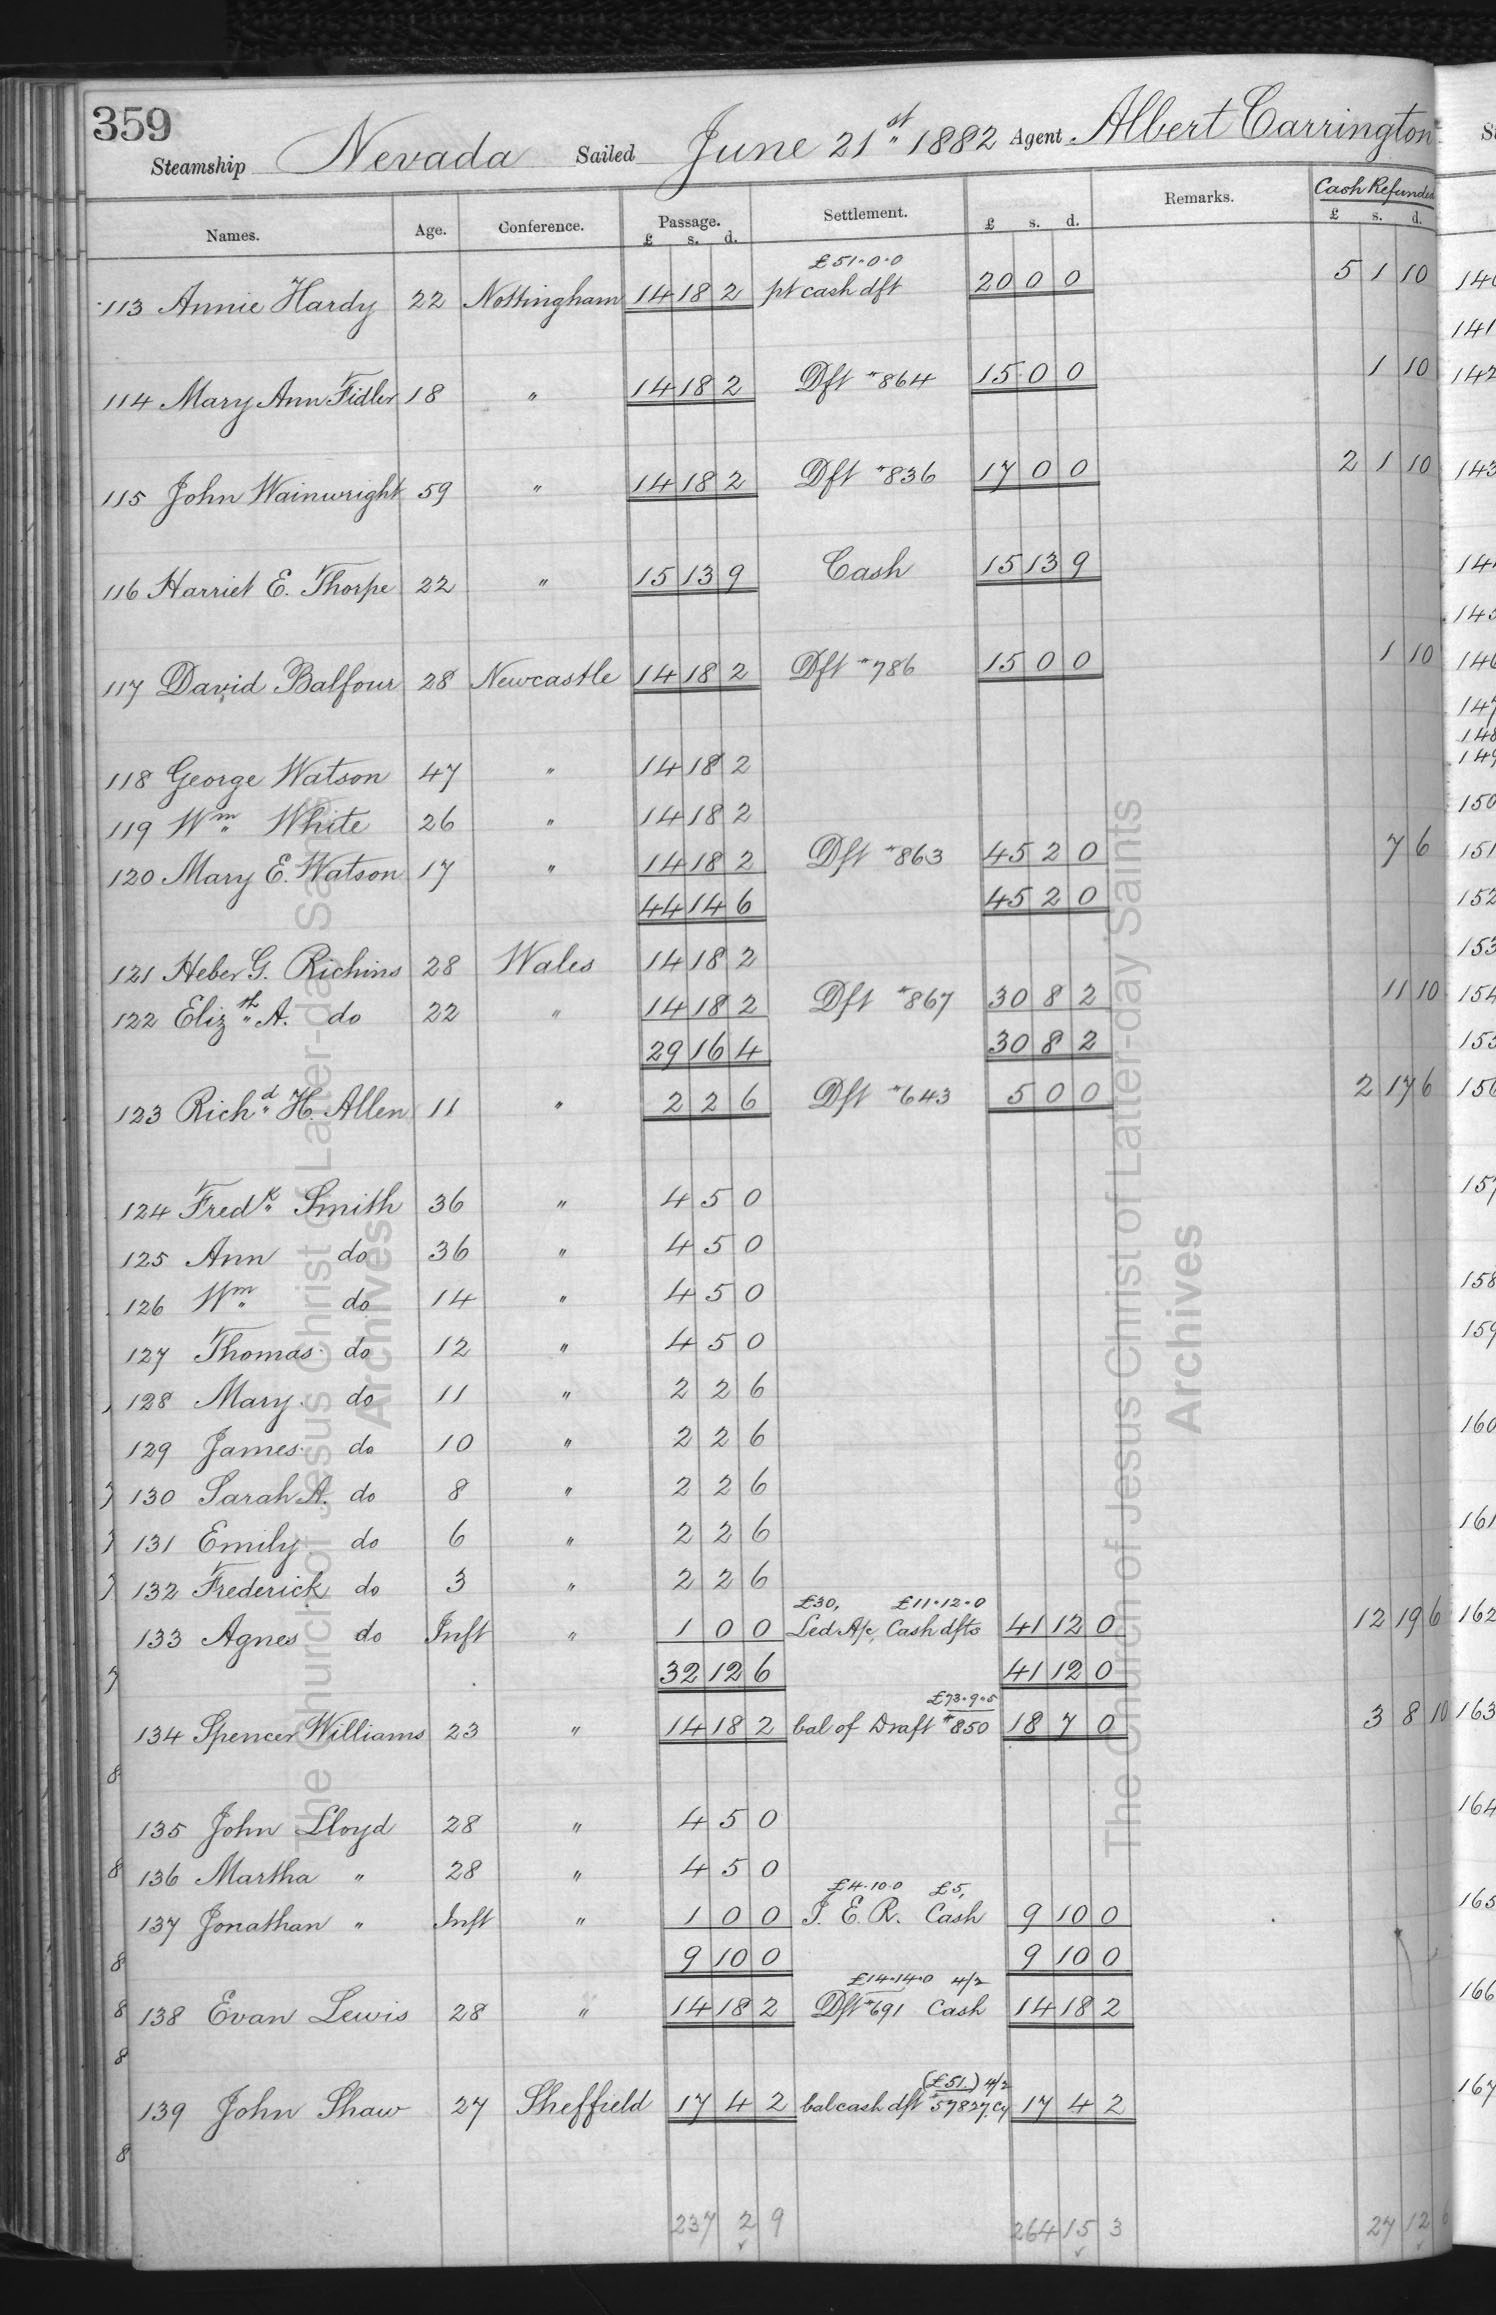 359
Steamship Nevada Sailed June 21st 1882 Agent Albert Carrington
Names. Age. Conference. Passage. Settlement. Remarks. Cash Refunded
£ s. d. £ s. d. £ s. d.
£51.0.0
113 Annie Hardy 22 Nottingham 14 18 2 pt cash dft 20 0 0 5 1 10
114 Mary Ann Fidler 18 " 14 18 2 Dft #864 15 0 0 1 10
115 John Wainwright 59 " 14 18 2 Dft #836 17 0 0 2 1 10
116 Harriet E. Thorpe 22 " 15 13 9 Cash 15 13 9
117 David Balfour 28 Newcastle 14 18 2 Dft #786 15 0 0 1 10
118 George Watson 47 " 14 18 2
119 Wm White 26 " 14 18 2
120 Mary E. Watson 17 " 14 18 2 Dft #863 45 2 0 7 6
44 14 6 45 2 0
121 Heber G. Richins 28 Wales 14 18 2
122 Elizth A. do 22 " 14 18 2 Dft #867 30 8 2 11 10
29 16 4 30 8 2
123 Richd H. Allen 11 " 2 2 6 Dft #643 5 0 0 2 17 6
124 Fredk Smith 36 " 4 5 0
125 Ann do 36 " 4 5 0
126 Wm do 14 " 4 5 0
127 Thomas do 12 " 4 5 0
128 Mary do 11 " 2 2 6
129 James do 10 " 2 2 6
130 Sarah A. do 8 " 2 2 6
131 Emily do 6 " 2 2 6
132 Frederick do 3 " 2 2 6
£30, £11.12.0
133 Agnes do Inft " 1 0 0 Led A/c, Cash dfts 41 12 0 12 19 6
32 12 6 41 12 0
£73.9.5
134 Spencer Williams 23 " 14 18 2 bal of Draft #850 18 7 0 3 8 10
135 John Lloyd 28 " 4 5 0
136 Martha " 28 " 4 5 0
£4.10.0 £5,
137 Jonathan " Inft " 1 0 0 I. E. R. Cash 9 10 0
9 10 0 9 10 0
£14.14.0 4/2
138 Evan Lewis 28 " 14 18 2 Dft #691 Cash 14 18 2
(£51) 4/2
139 John Shaw 27 Sheffield 17 4 2 bal cash dft #57827. Cy 17 4 2
237 2 9 264 15 3 27 12 6
The Church of Jesus Christ of Latter-day Saints
Archives
The Church of Jesus Christ of Latter-day Saints
Archives
141
142
143
146
150
151
152
153
154
156
157
158
159
160
161
162
163
164
165
166
167